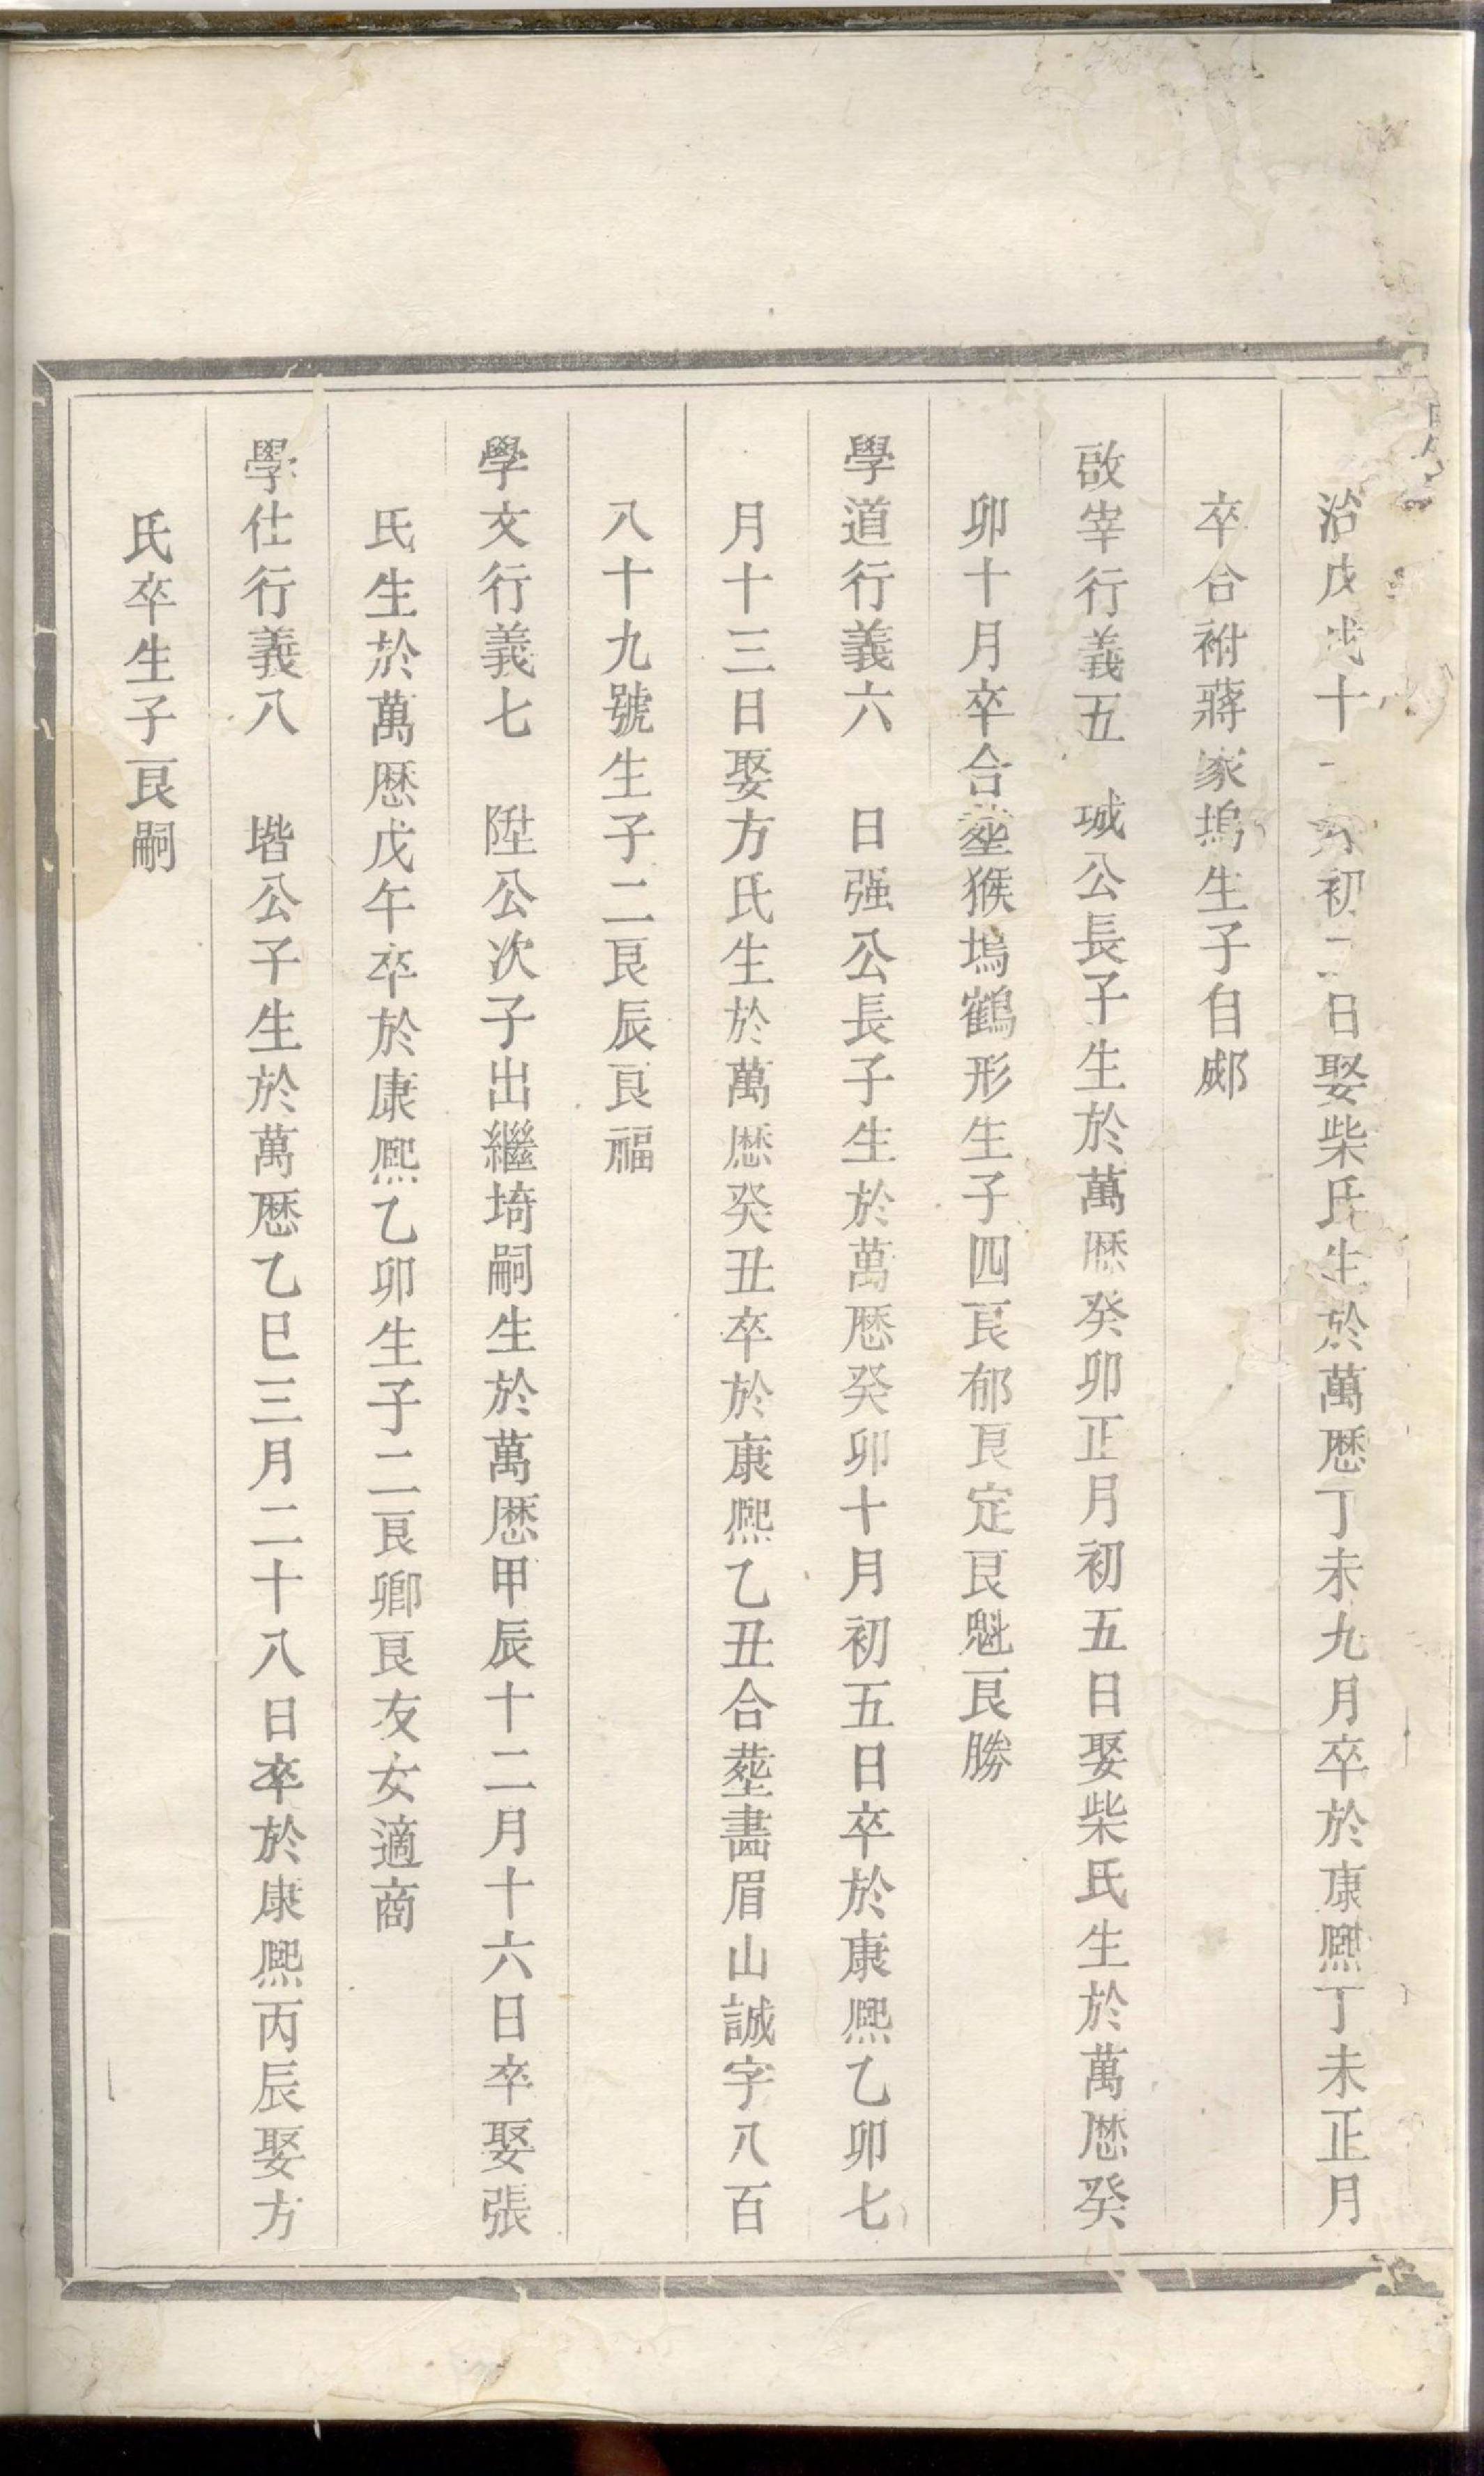 治戊戌十一月初二日娶柴氏生於萬厯丁未九月卒於康熙丁未正月
卒合祔蔣家塢生子自郕
啟宰行義五　城公長子生於萬厯癸卯正月初五日娶柴氏生於萬厯癸
卯十月卒合塟猴塢鶴形生子四艮郁艮定艮魁艮勝
學道行義六　日强公長子生於萬厯癸卯十月初五日卒於康熙乙卯七
月十三日娶方氏生於萬厯癸丑卒於康熙乙丑合塟畵眉山誠字八百
八十九號生子二艮辰艮福
學文行義七　陞公次子出繼埼嗣生於萬厯甲辰十二月十六日卒娶張
氏生於萬厯戊午卒於康熙乙卯生子二艮卿艮友女適商
學仕行義八　堦公子生於萬厯乙巳三月二十八日卒於康熙丙辰娶方
氏卒生子艮嗣